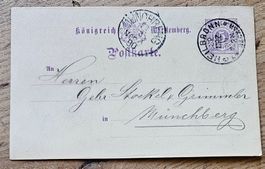 Königreich Württemberg.
Postkarte.
An Herren
Gebr. Stockel & Grimmler
in Münchberg